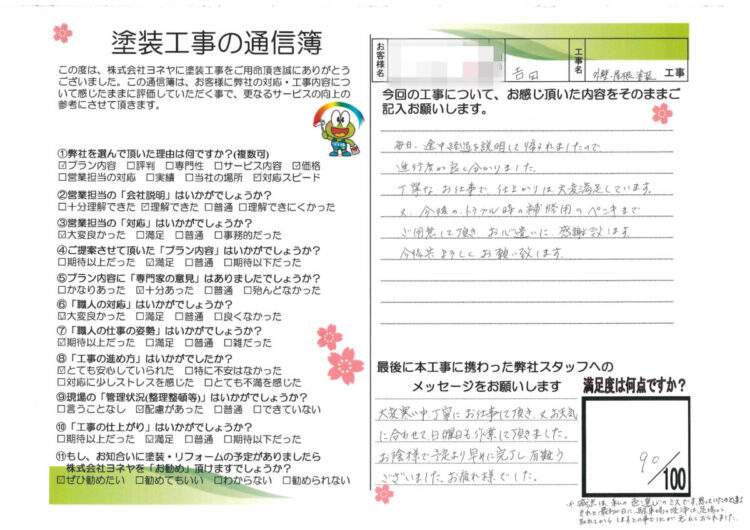 塗装工事の通信簿
この度は、株式会社ヨネヤに塗装工事をご用命頂き誠にありがとう
ございました。この通信簿は、お客様に弊社の対応・工事内容につ
いて感じたままに評価していただく事で、更なるサービスの向上の
参考にさせて頂きます。
①弊社を選んで頂いた理由は何ですか?(複数可)
☑プラン内容 □評判 □専門性 □サービス内容 ☑価格
□営業担当の対応 □実績 □当社の場所 ☑対応スピード
②営業担当の「会社説明」はいかがでしょうか?
□十分理解できた ☑理解できた □普通 □理解できにくかった
③営業担当の「対応」はいかがでしょうか?
☑大変良かった □満足 □普通 □事務的だった
④ご提案させて頂いた「プラン内容」はいかがでしょうか?
□期待以上だった ☑満足 □普通 □期待以下だった
⑤プラン内容に「専門家の意見」はありましたでしょうか?
□かなりあった ☑十分あった □普通 □殆んどなかった
⑥「職人の対応」はいかがでしょうか?
☑大変良かった □満足 □普通 □良くなかった
⑦「職人の仕事の姿勢」はいかがでしょうか?
☑期待以上だった □満足 □普通 □雑だった
⑧「工事の進め方」はいかがでしたか?
☑とても安心していられた □特に不安はなかった
□対応に少しストレスを感じた □とても不満を感じた
⑨現場の「管理状況(整理整頓等)」はいかがでしょうか?
□言うことなし ☑配慮があった □普通 □できていない
⑩「工事の仕上がり」はいかがでしょうか?
□期待以上だった ☑満足 □普通 □期待以下だった
⑪もし、お知合いに塗装・リフォームの予定がありましたら
株式会社ヨネヤを「お勧め」頂けますでしょうか?
☑ぜひ勧めたい □勧めてもいい □わからない □勧められない
お客様名
吉田
工事名
外壁・屋根塗装 工事
今回の工事について、お感じ頂いた内容をそのままご
記入お願いします。
毎日、途中経過を説明して帰られましたので
進行度が良く分かりました。
丁寧なお仕事で、仕上がりは大変満足しています。
又、今後のトラブル時の補修用のペンキまで
ご用意して頂き お心遣いに感謝致します。
今後共よろしくお願い致します。
最後に本工事に携わった弊社スタッフへの
メッセージをお願いします
大変寒い中丁寧にお仕事して頂き、又お天気
に合わせて日曜日も作業して頂きました。
お陰様で予定より早めに完了し有難う
ございました。お疲れ様でした。
満足度は何点ですか?
90/100